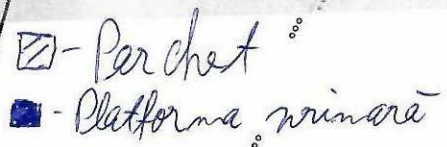 - Parchet
- Platforma primară